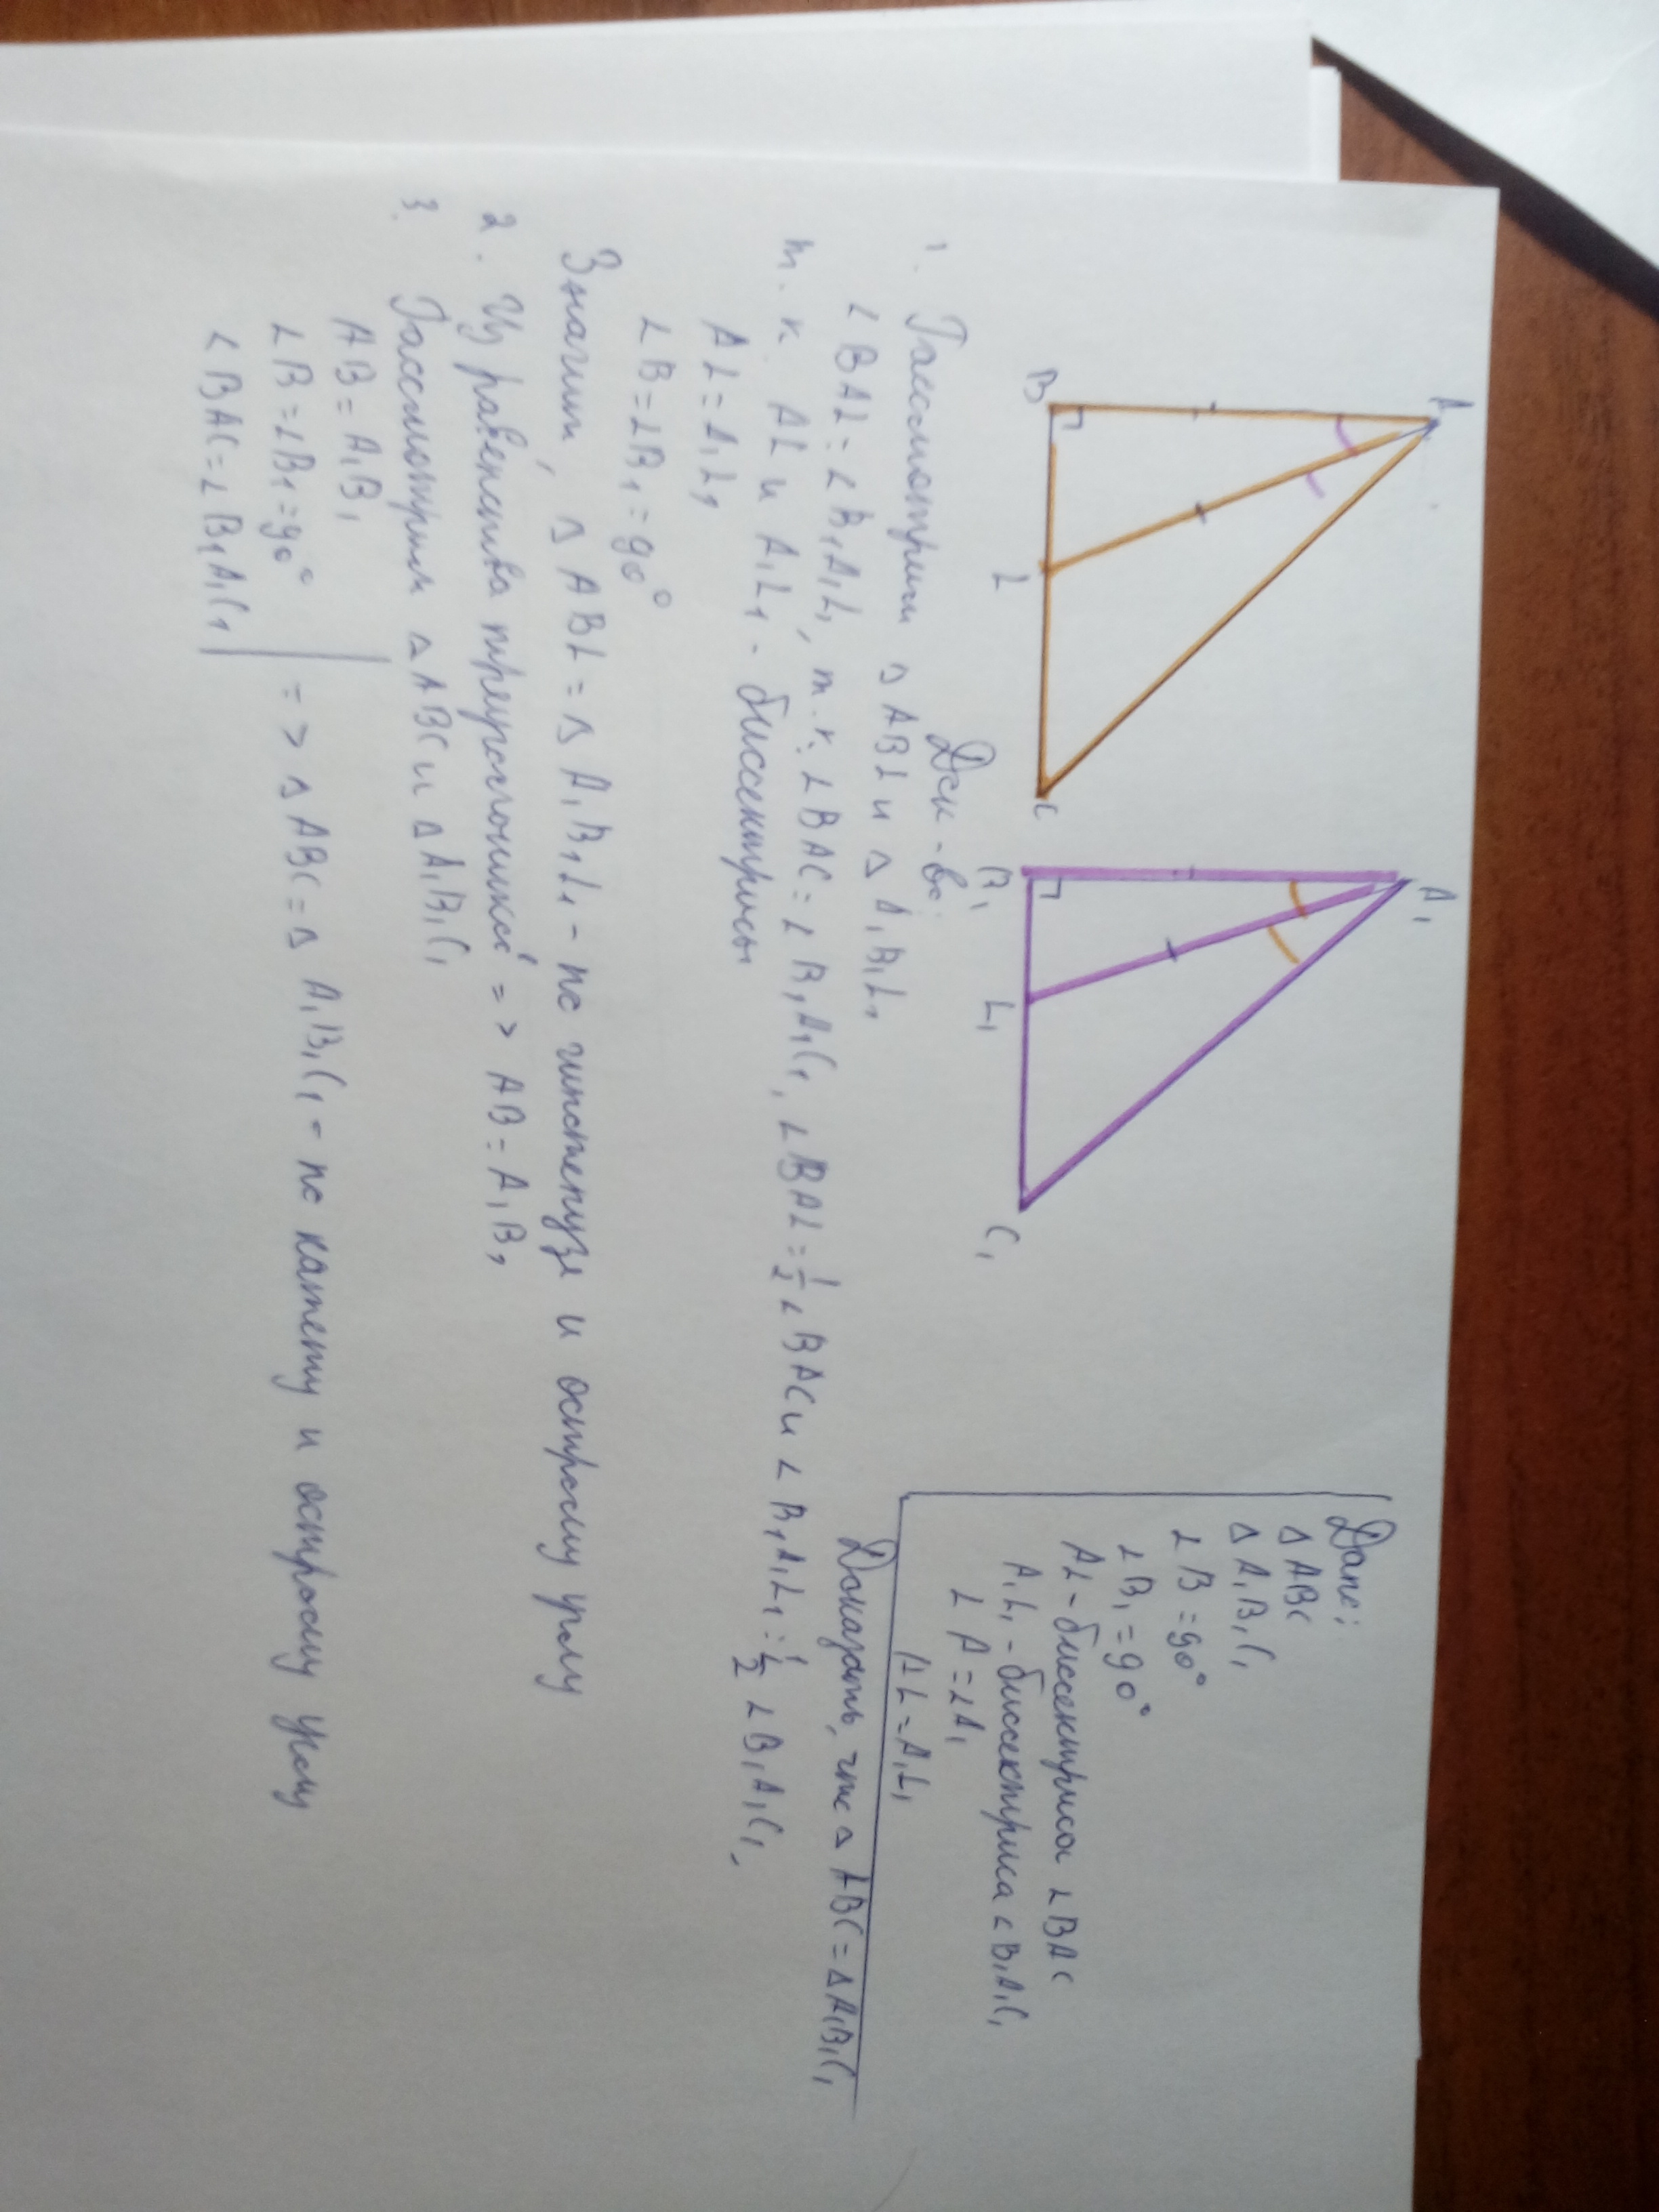 A
B
L
C
A₁
B₁
L₁
C₁
Дано:
△ ABC
△ A₁B₁C₁
∠B = 90°
∠B₁ = 90°
AL - биссектриса ∠BAC
A₁L₁ - биссектриса ∠B₁A₁C₁
∠A = ∠A₁
AL = A₁L₁
Доказать, что △ ABC = △ A₁B₁C₁
Док-во:
1. Рассмотрим △ ABL и △ A₁B₁L₁
∠BAL = ∠B₁A₁L₁, т.к. ∠BAC = ∠B₁A₁C₁, ∠BAL = 1/2 ∠BAC и ∠B₁A₁L₁ = 1/2 ∠B₁A₁C₁,
т.к. AL и A₁L₁ - биссектрисы
AL = A₁L₁
∠B = ∠B₁ = 90°
Значит, △ ABL = △ A₁B₁L₁ - по гипотенузе и острому углу
2. Из равенства треугольников => AB = A₁B₁
3. Рассмотрим △ ABC и △ A₁B₁C₁
AB = A₁B₁
∠B = ∠B₁ = 90° => △ ABC = △ A₁B₁C₁ - по катету и острому углу
∠BAC = ∠B₁A₁C₁